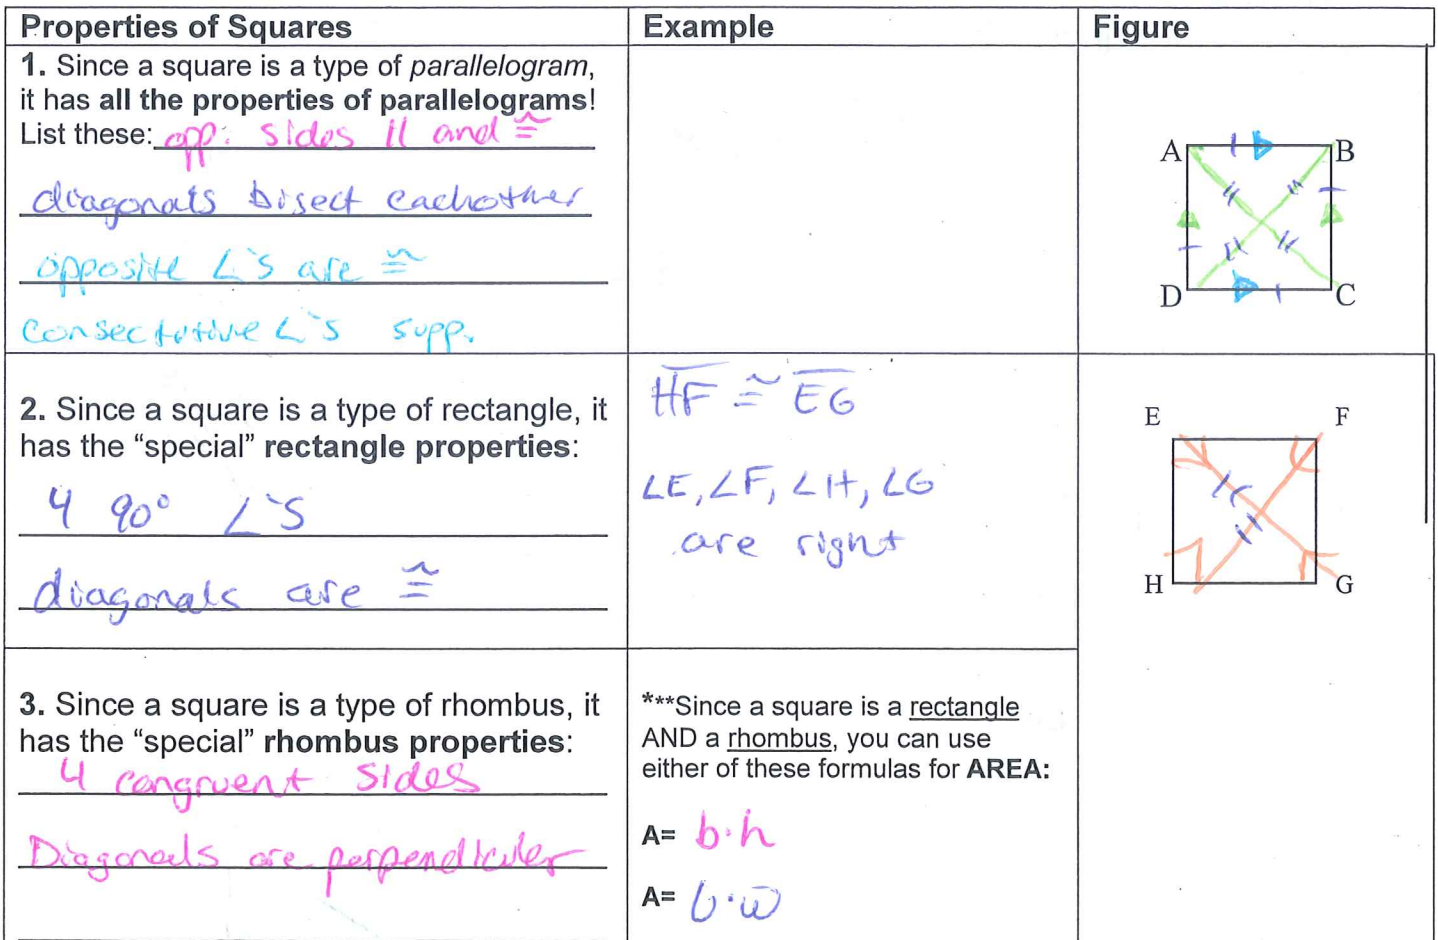 Properties of Squares
Example
Figure
1. Since a square is a type of parallelogram,
it has all the properties of parallelograms!
List these: opp. sides || and ≅
diagonals bisect eachother
opposite ∠'s are ≅
consecutive ∠'s supp.
A
B
D
C
2. Since a square is a type of rectangle, it
has the “special” rectangle properties:
4 90° ∠'s
diagonals are ≅
H̅F̅ ≅ E̅G̅
∠E, ∠F, ∠H, ∠G
are right
E
F
H
G
3. Since a square is a type of rhombus, it
has the “special” rhombus properties:
4 congruent sides
Diagonals are perpendicular
***Since a square is a rectangle
AND a rhombus, you can use
either of these formulas for AREA:
A= b·h
A= l·w